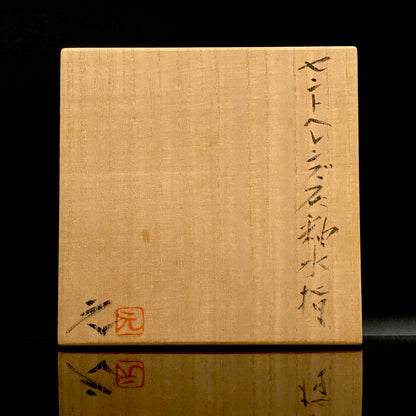 セントヘレンズ灰釉水指
元
元